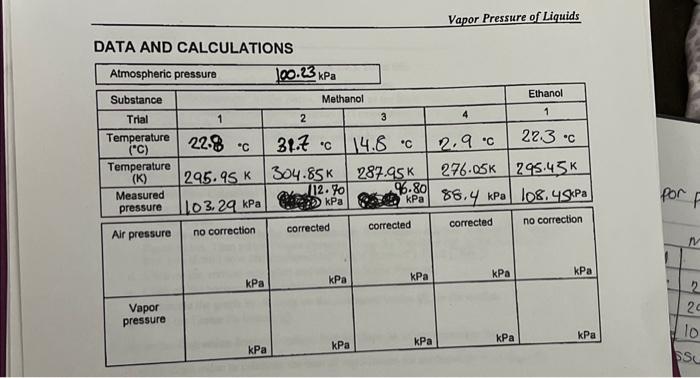 Vapor Pressure of Liquids
DATA AND CALCULATIONS
Atmospheric pressure 100.23 kPa
Substance Methanol Ethanol
Trial 1 2 3 4 1
Temperature (°C) 22.8 °C 31.7 °C 14.8 °C 2.9 °C 22.3 °C
Temperature (K) 295.95 K 304.85 K 287.95 K 276.05 K 295.45 K
Measured pressure 103.29 kPa 112.70 kPa 96.80 kPa 88.4 kPa 108.45 kPa
Air pressure no correction corrected corrected corrected no correction
kPa kPa kPa kPa kPa
Vapor pressure
kPa kPa kPa kPa kPa
por
2
10